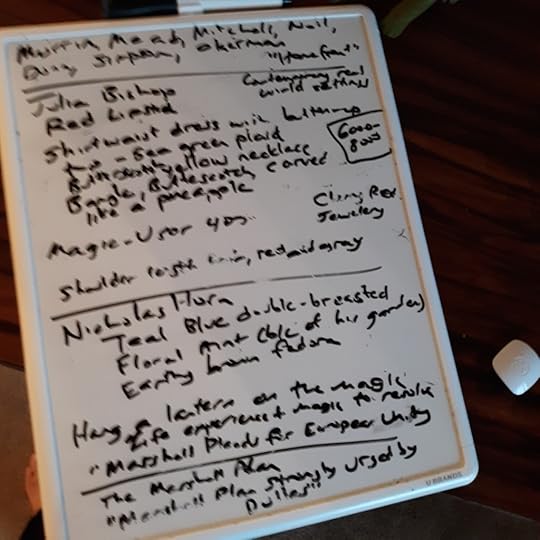 Martin, Mead, Mitchell, Nail,
Duxy Simpson, Okerman
"Homefront"
Julia Bishop
Contemporary real
world setting
Red Lipstick
Shirtwaist dress with buttons up
two-sea green plaid
6000-
8000
Butterscotch yellow necklace
Bangle, Butterscotch carved
like a pineapple
Cherry Red
Jewelery
Magic-User 40s
Shoulder length hair, red and gray
Nicholas Horn
Teal Blue double-breasted
Floral print (ble of his garden)
Earthy brown fedora
Hang a lantern on the magic
Life experience + magic to resolve
"Marshall Pleads for European Unity
The Marshall Plan
"Marshall Plan Strongly Urged by
Dulles"
U BRANDS